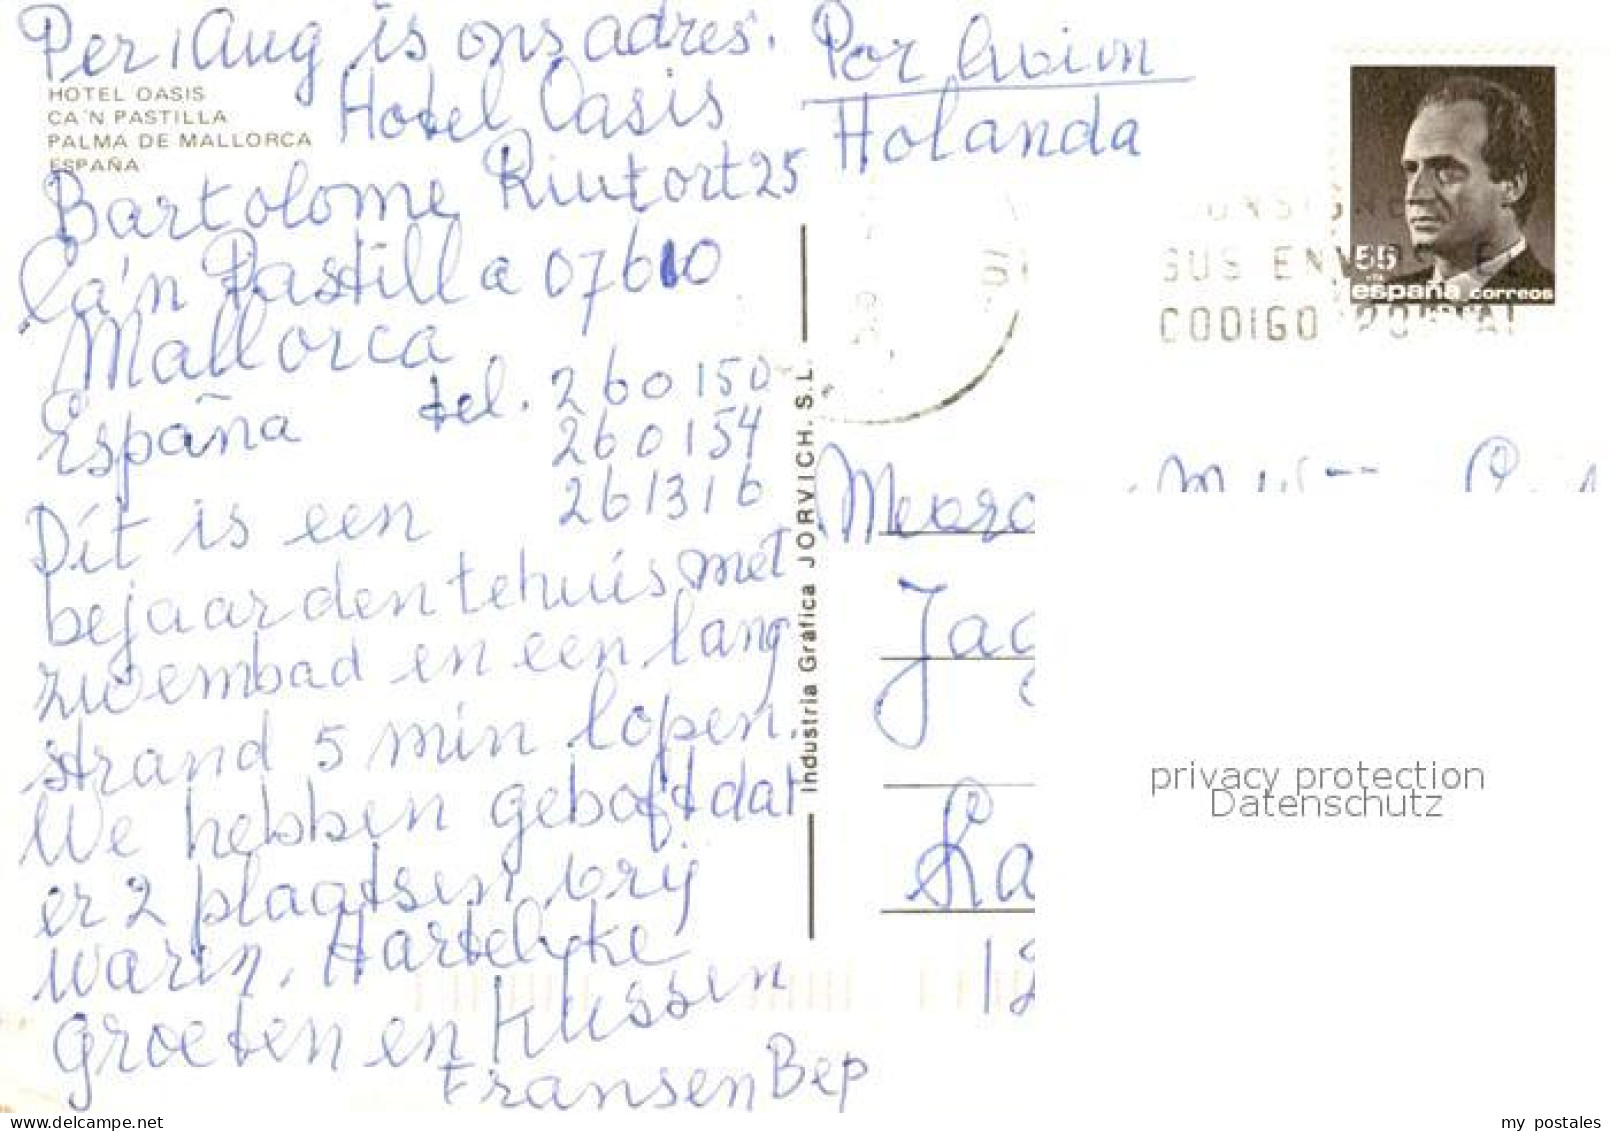 Per 1 Aug is ons adres.
HOTEL OASIS
CA'N PASTILLA
PALMA DE MALLORCA
ESPAÑA
Hotel Oasis
Bartolome Riutort 25
Ca'n Pastilla 07610
Mallorca
España tel. 260150
260154
261316
Dit is een
bejaardentehuis met
zwembad en een lang
strand 5 min lopen.
We hebben geboft dat
er 2 plaatsen vrij
warin. Hartelijke
groeten en kussen
Frans en Bep
Industria Gráfica JORVICH. S.L.
Por Avion
Holanda
55
PTA
españa correos
CONSIGNE
SUS ENV
CODIGO POSTAL
Jag
La
12
privacy protection
Datenschutz
my postales